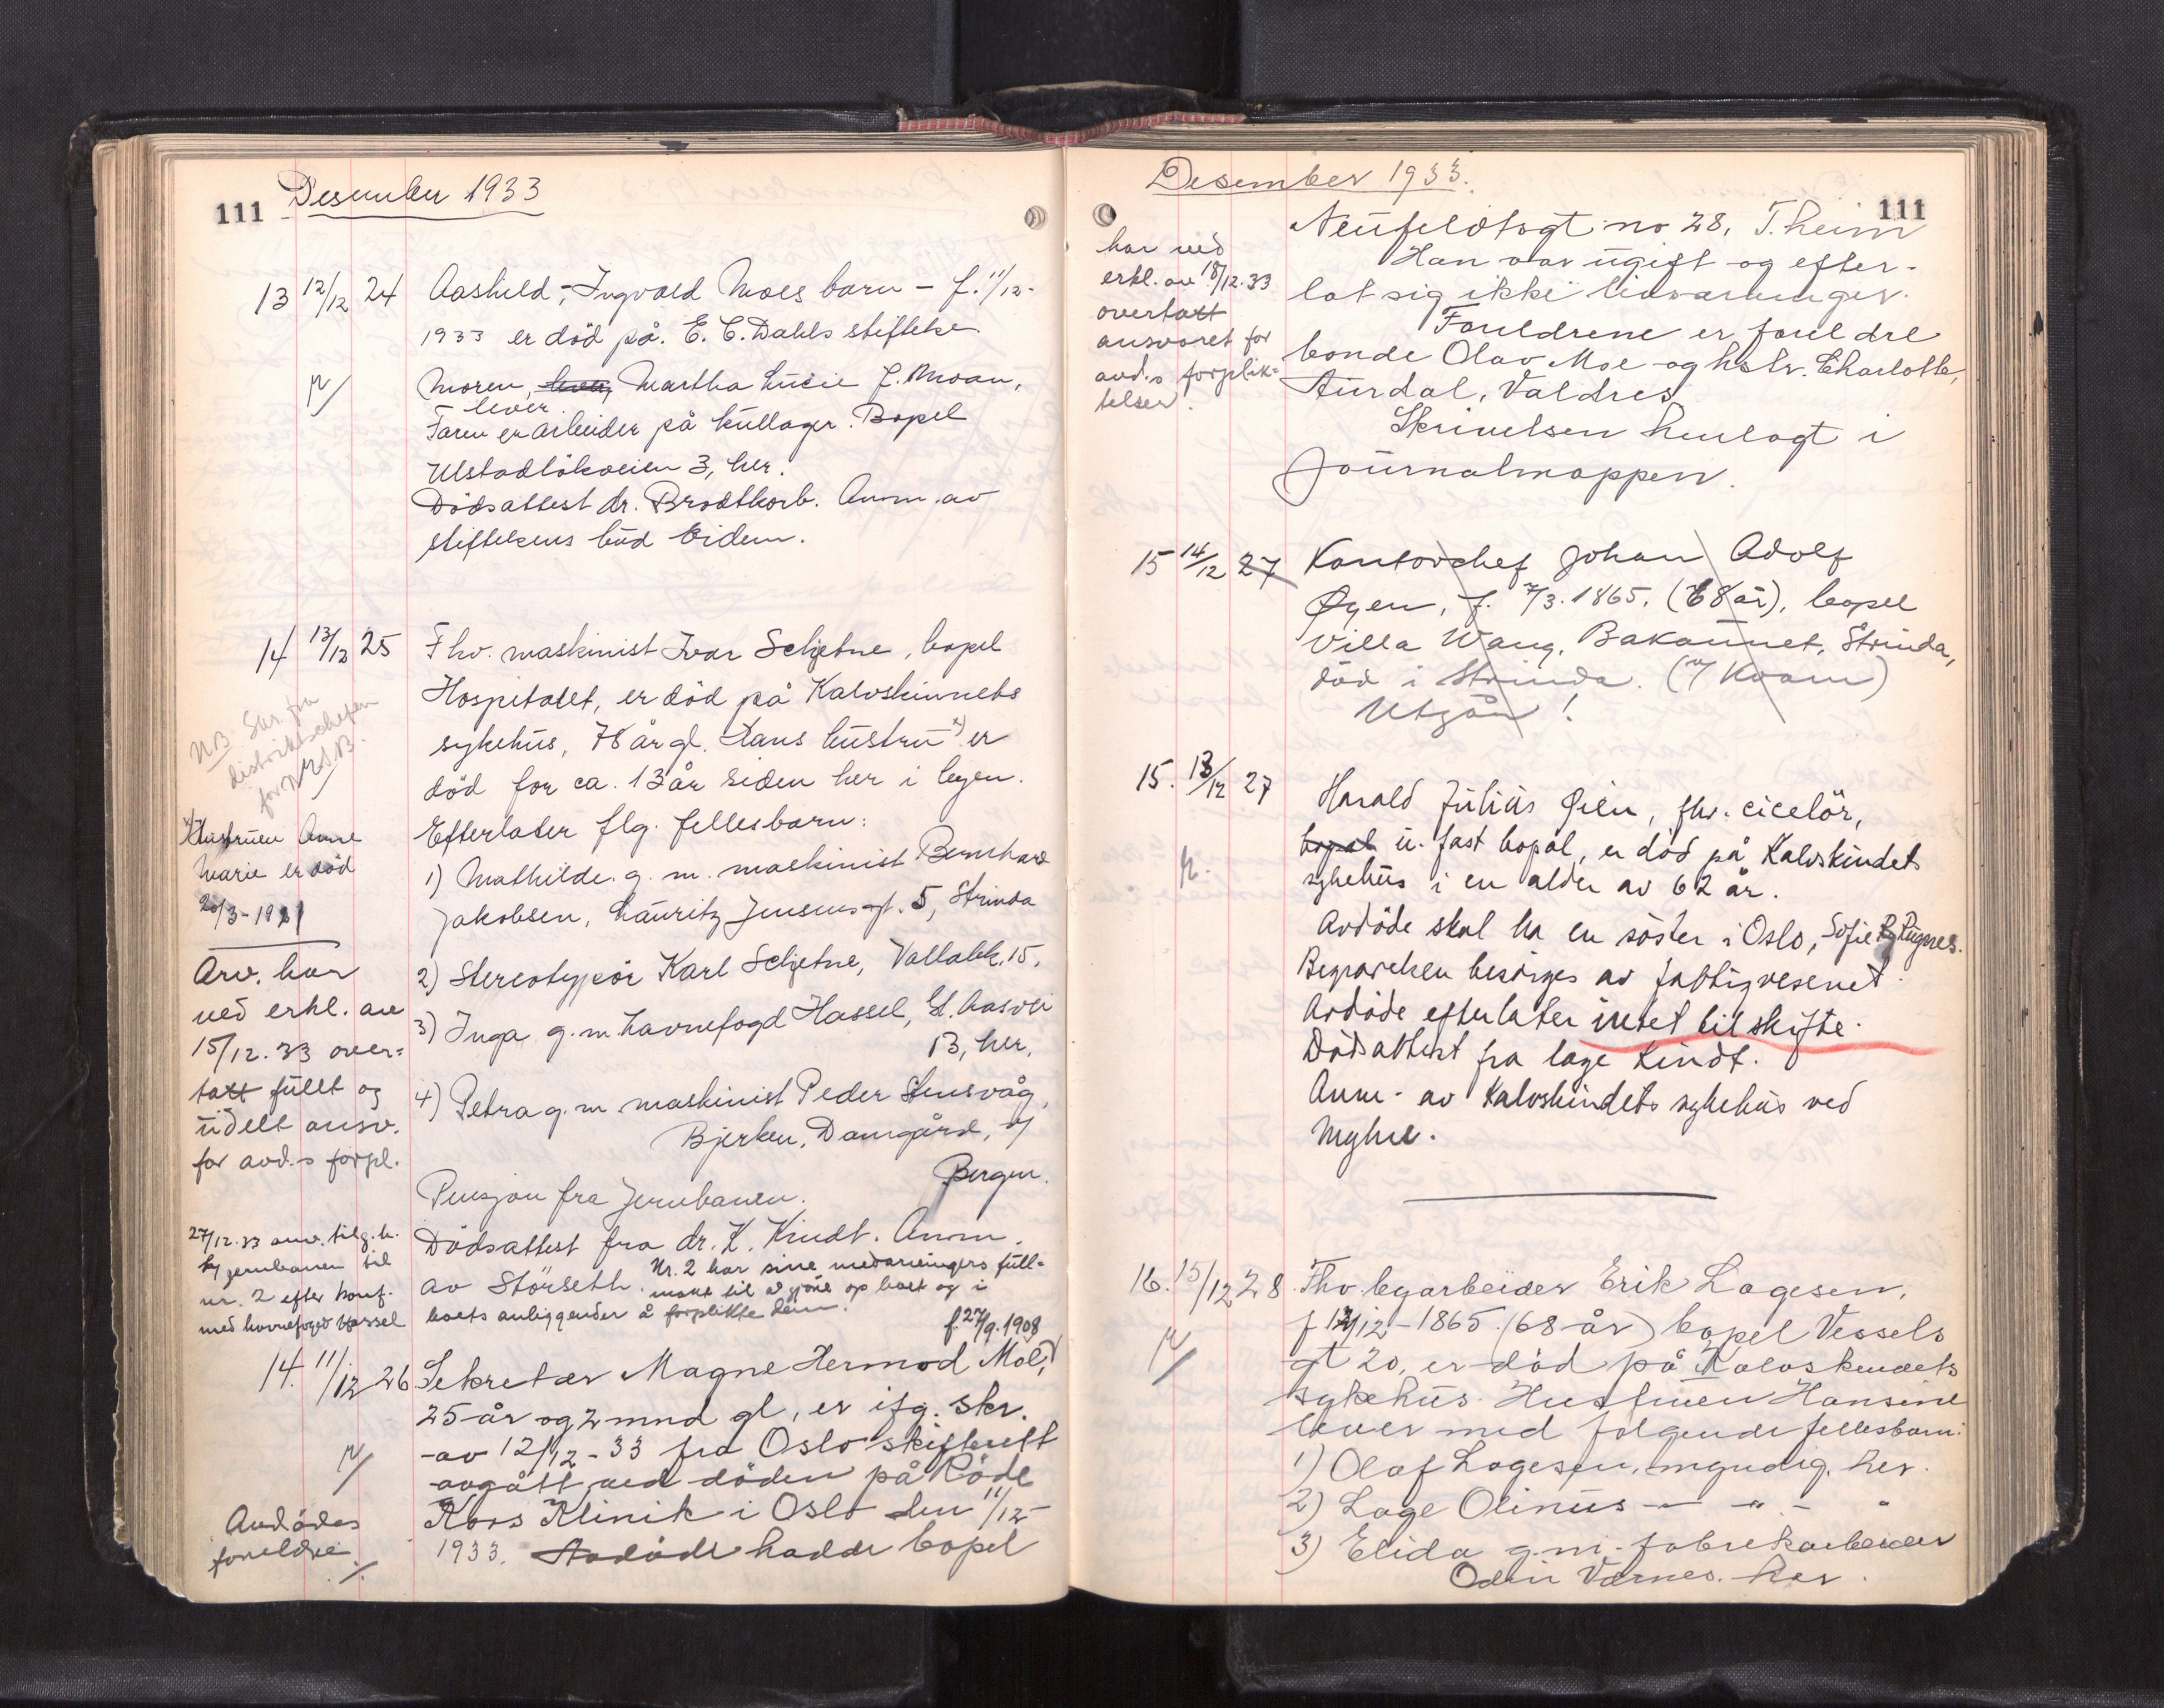 111 Desember 1933
13 12/12 24 Aashild, Ingvald Moes barn - f. 11/12-
1933 er död på E. C. Dahls stiftelse
Moren, lever, Martha Lucie f. Moan,
lever.
Faren er arbeider på kullager. Bopel
Ulstadlökveien 3, her.
Dödsattest dr. Brodtkorb. Anm. av
stiftelsens bud Eidem.
14 13/12 25 Fhv. maskinist Ivar Schjetne, bopel
Hospitalet, er död på Kalvskinnets
sykehus, 78 år gl. Hans hustru x) er
död for ca. 13 år siden her i byen.
Efterlater flg. fellesbarn:
1) Mathilde g. m. maskinist Bernhard
Jakobsen, Lauritz Jensensgt. 5, Strinda
2) Stereotypör Karl Schjetne, Vollabk. 15.
3) Inga g. m. havnefogd Hassel, G. Aasvei
13, her.
4) Petra g. m. maskinist Peder Stensvåg,
Bjerken, Damgård,
Bergen.
Pensjon fra Jernbanen.
Dödsattest fra dr. K. Kindt. Anm.
av Störseth. Nr. 2 har sine medarvingers full-
makt til å gjöre op boet og i
boets anliggender å forplikte dem.
NB Skr. fra
distriktschefen
for N.S.B.
x) Hustruen Anne
Marie er död
20/3-1921
Arv. har
ved erkl. av
15/12.33 over-
tatt fullt og
udelt ansv.
for avd.s forpl.
27/12.33 anv. tilg. h.
jernbanen til
nr. 2 efter konf.
med havnefogd Hassel
f. 27/9.1908
14. 11/12 26 Sekretær Magne Hermod Moe,
25 år og 2 mnd gl, er ifg. skr.
av 12/12-33 fra Oslo skifterett
avgått ved döden på Röde
Kors Klinik i Oslo den 11/12-
1933. Avdöde hadde bopel
Avdödes
foreldre
./.
Desember 1933.
111
Neufeldtsgt no 28, T.heim
Han var ugift og efter-
lot sig ikke livsarvinger.
Foreldrene er foreldre
bonde Olav Moe og hstr. Charlotte,
Aurdal, Valdres
Skrivelsen henlagt i
journalmappen.
har ved
erkl. av 18/12.33
overtatt
ansvaret for
avd.s forplik-
telser.
15 14/12 27 Kontorchef Johan Adolf
Øyen, f. 7/3.1865. (68 år), bopel
Villa Wang, Bakaunet, Strinda,
död i Strinda. (Kvam)
Utgår!
15. 13/12 27 Harald Julius Øien, fhv. ciselör,
bopel u. fast bopel, er död på Kalvskindets
sykehus i en alder av 62 år.
Avdöde skal ha en söster i Oslo, Sofie Rygnes.
Begravelsen besörges av fattigvesenet.
Avdöde efterlater intet til skifte.
Dödsattest fra læge Kindt.
Anm. av Kalvskindets sykehus ved
Myhre.
16. 15/12 28 Fhv. byarbeider Erik Lagesen,
f 12/12-1865. (68 år) bopel Vessels
gt 20, er död på Kalvskindets
sykehus. Hustruen Hansine
lever med fölgende fellesbarn:
1) Olaf Lagesen, myndig, her.
2) Lage Olinus - " - "
3) Elida g. m. fabrikarbeider
Odin Værnes. her.